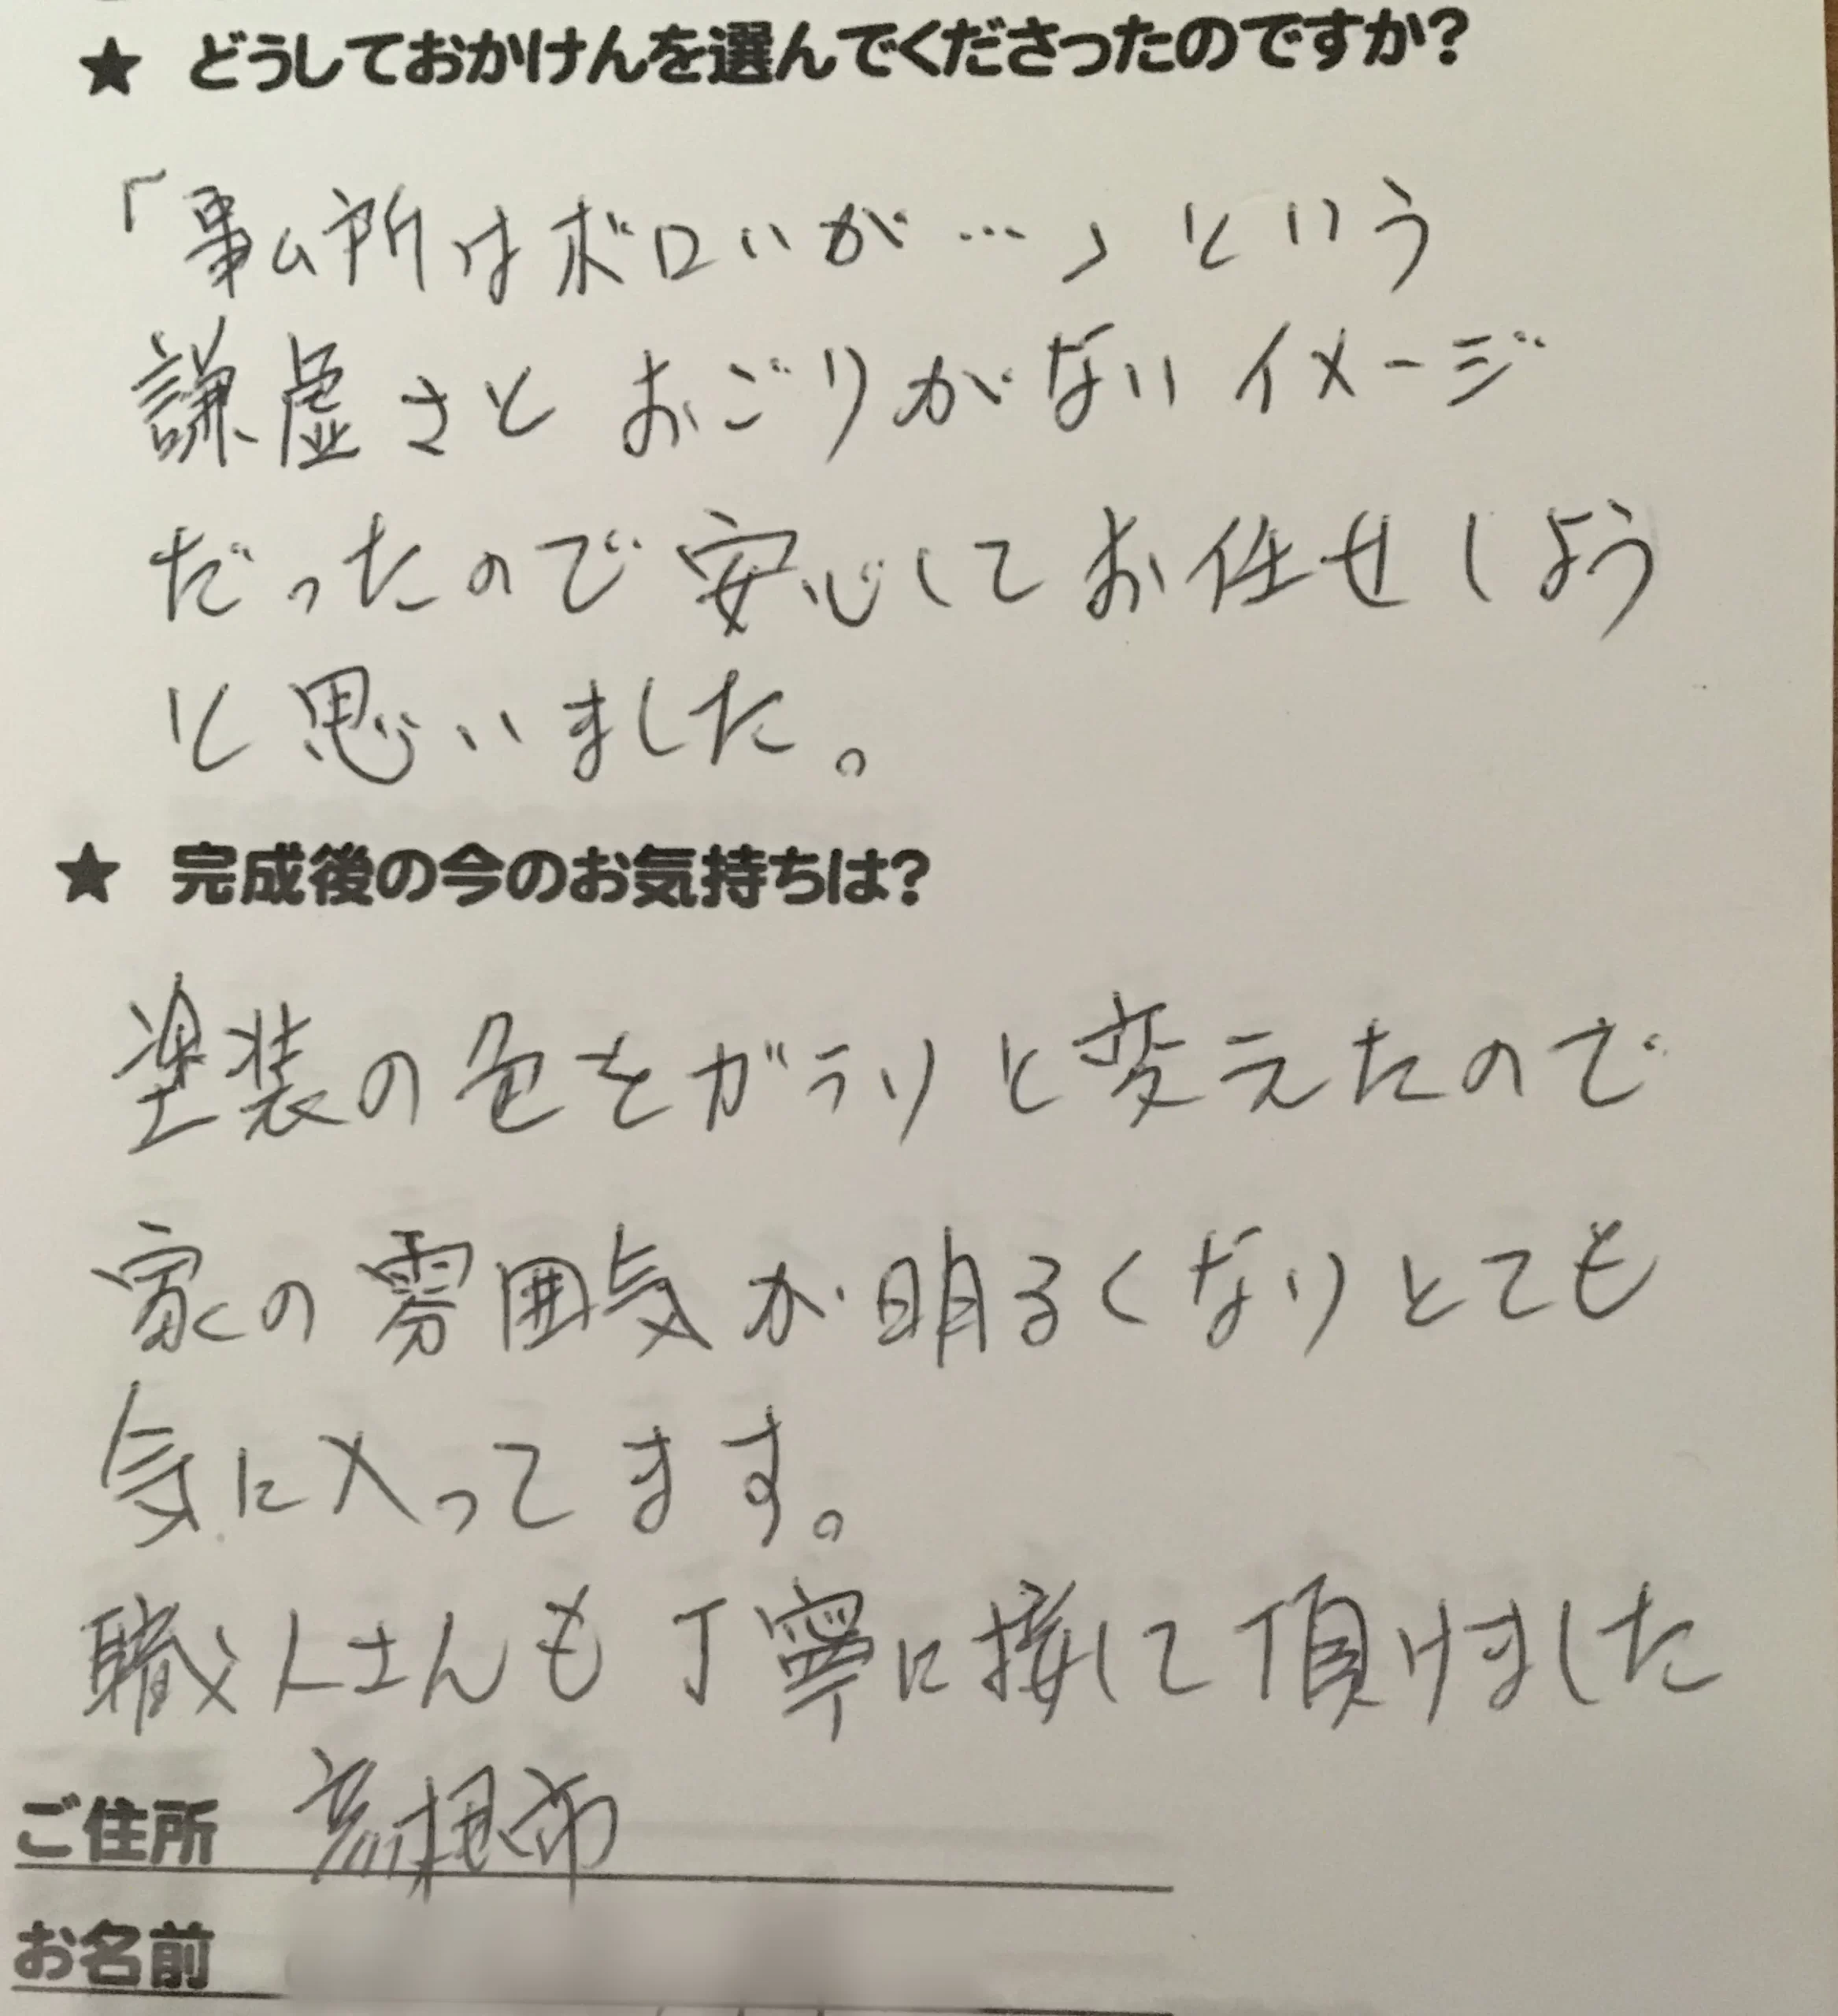 ★ どうしておかけんを選んでくださったのですか?
「事ム所はボロいが…」という
謙虚さと おごりがない イメージ
だったので 安心して お任せしよう
と 思いました。
★ 完成後の今のお気持ちは?
塗装の色をガラリと変えたので
家の雰囲気が明るくなりとても
気に入ってます。
職人さんも丁寧に接して頂けました
ご住所 彦根市
お名前